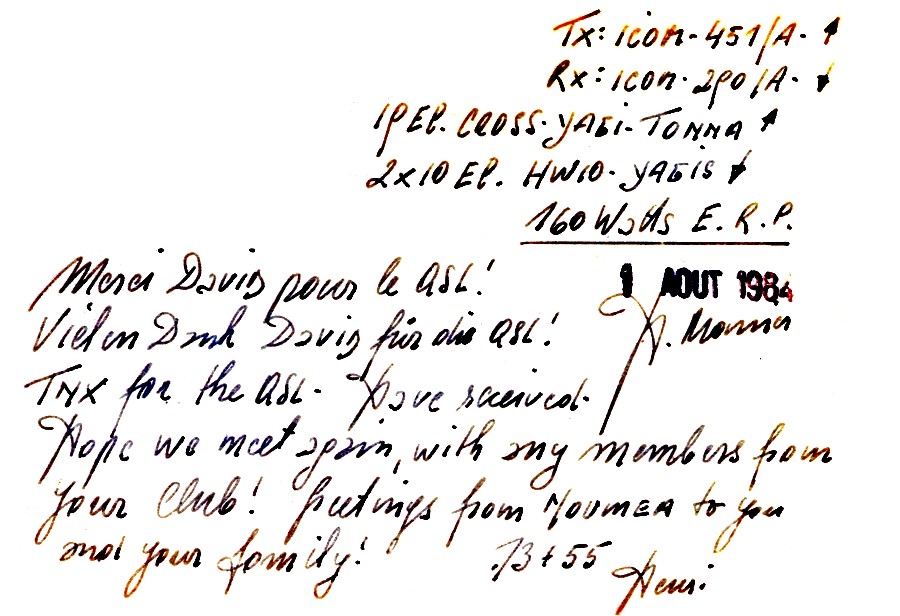 Tx: icom-451/A- ↑
Rx: icom-290/A- ↓
19 El. CROSS-YAGI-TONNA ↑
2x10 El. HW10-YAGIS ↓
160 Watts E.R.P.
Merci David pour le QSL!
1 AOUT 1984
Vielen Dank David für die QSL!
H.
TNX for the QSL- Have received.
Hope we meet again, with any members from
your Club! Greetings from NOUMEA to you
and your family!
73 + 55
Henri